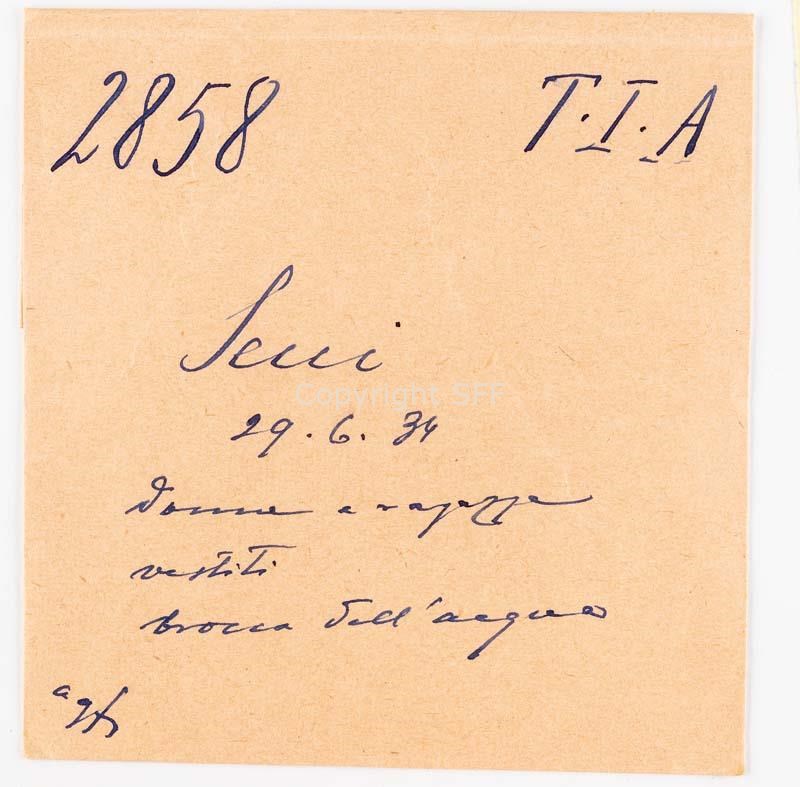 2858 T.I.A
Scui
29.6.34
donne e ragazze
vestiti
brocca dell'acqua
agf
Copyright SFF